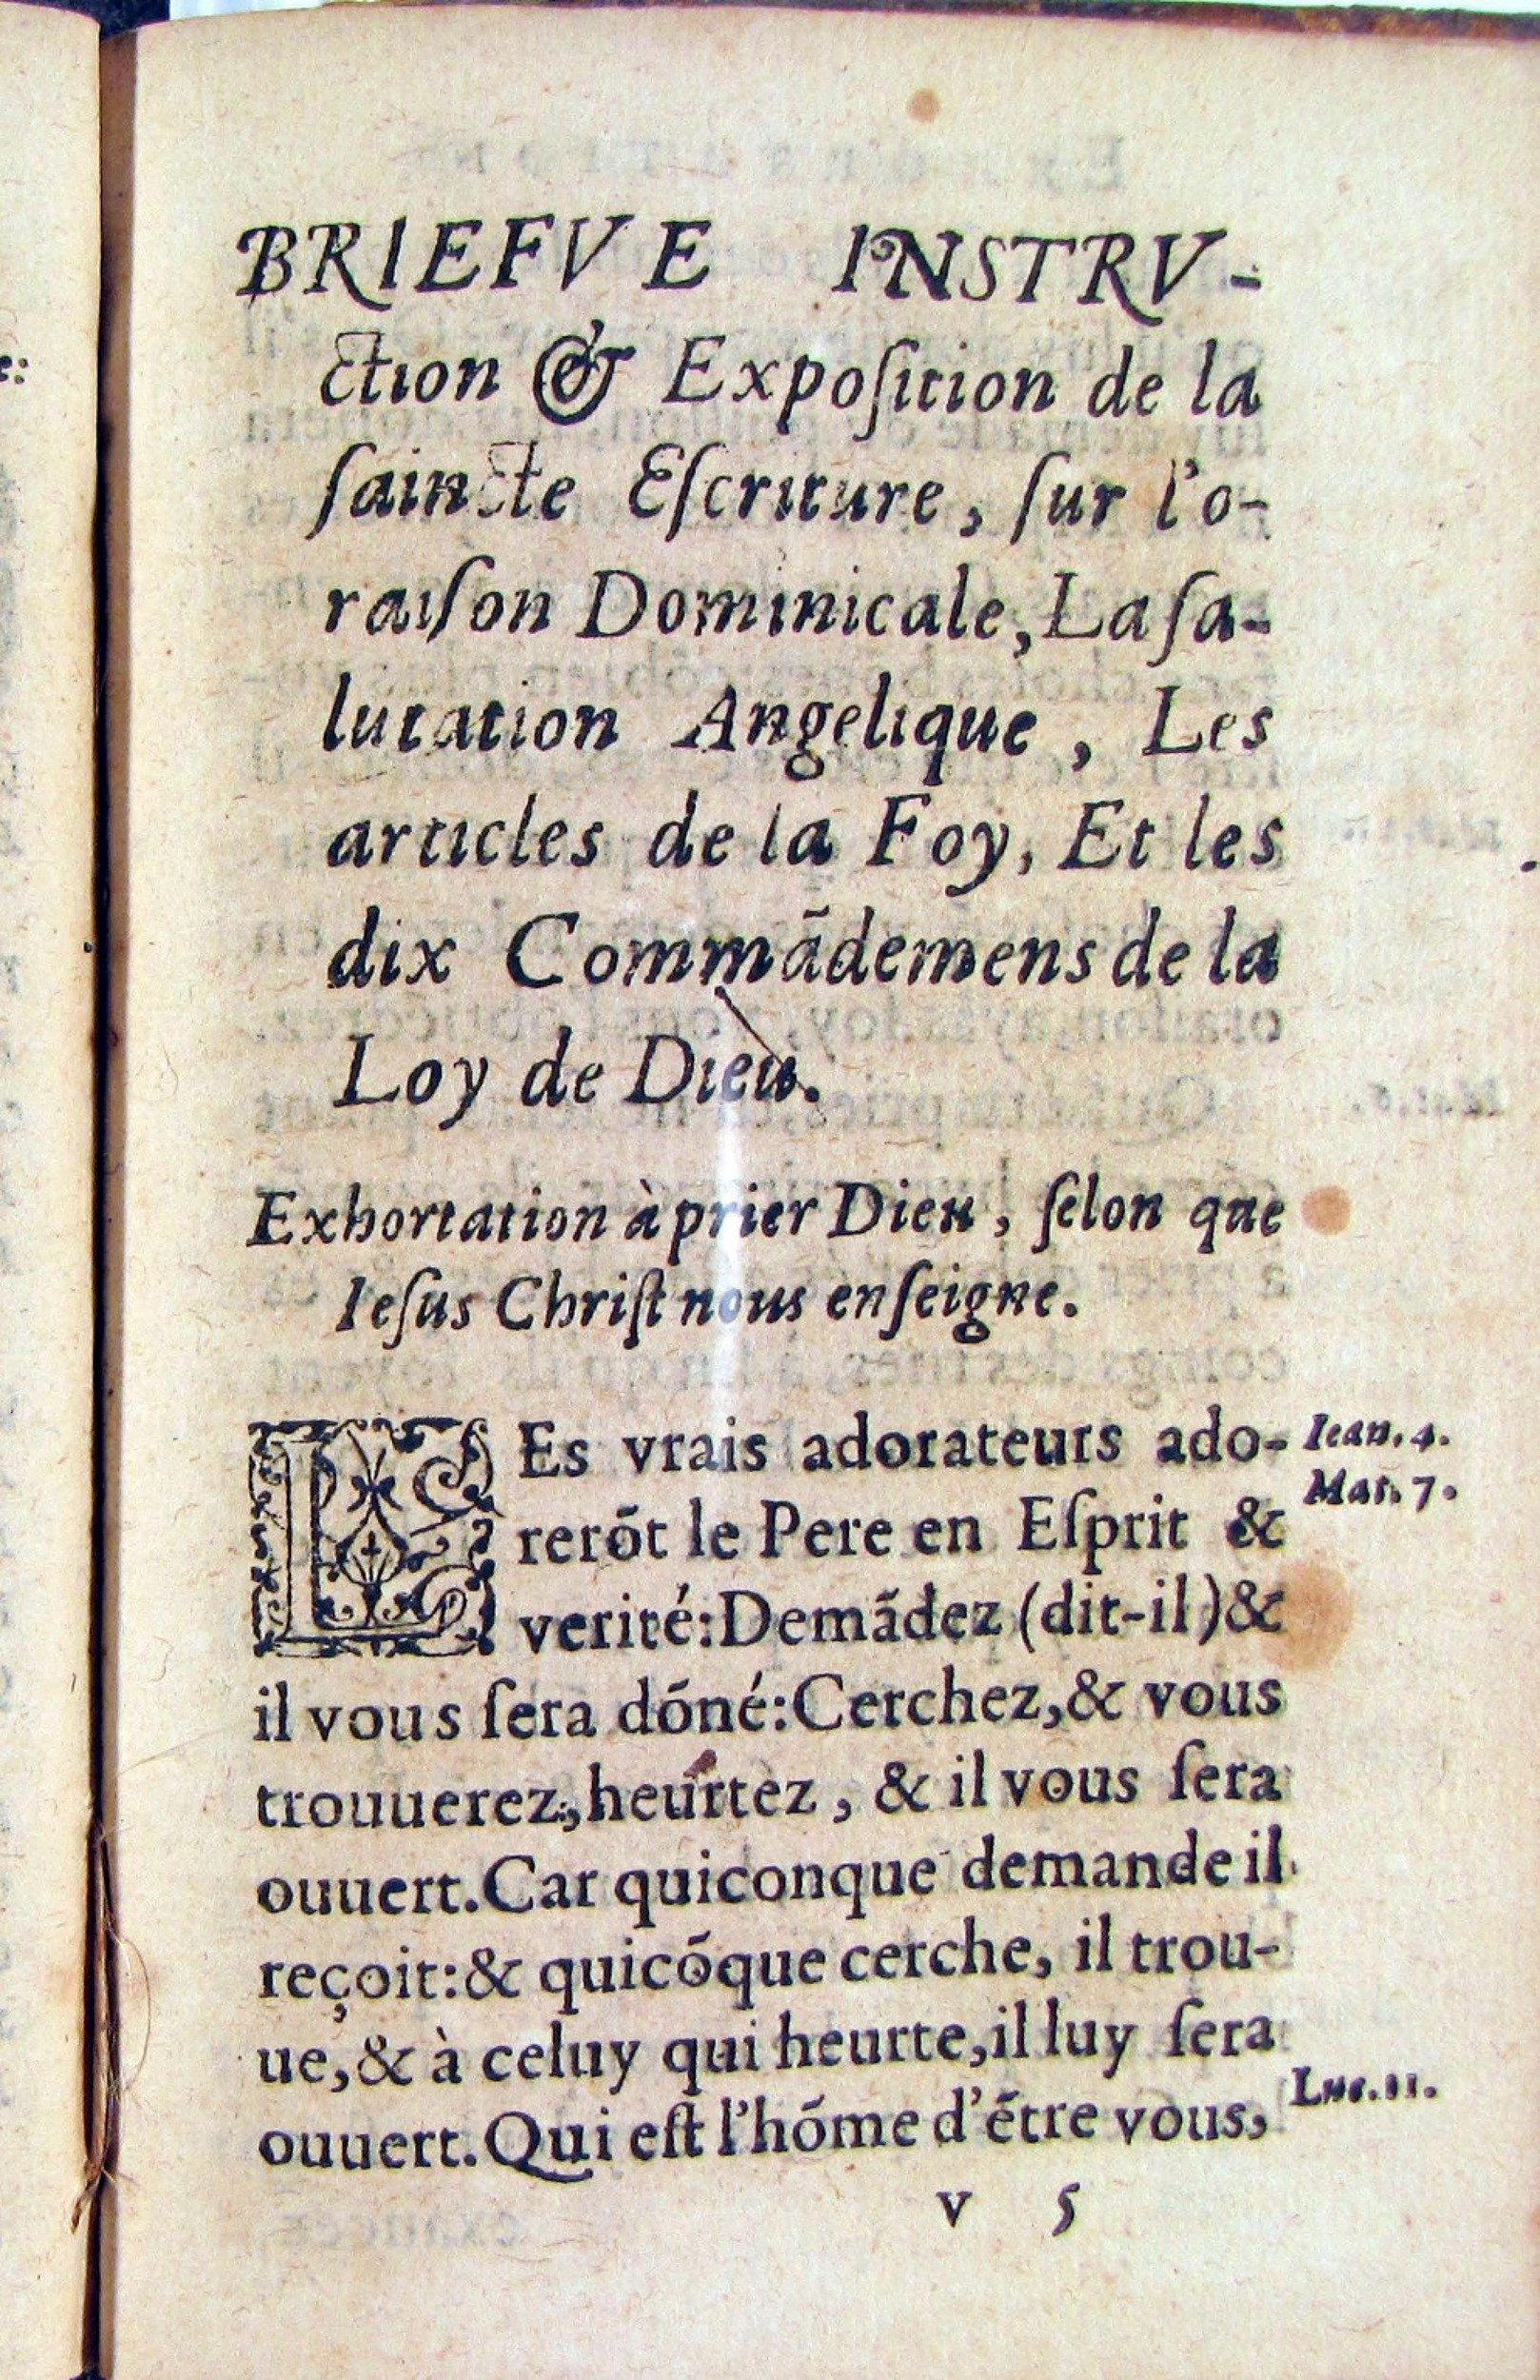 BRIEFVE INSTRV-
ction & Expoſition de la
ſaincte Eſcriture, ſur l'o-
raiſon Dominicale, La ſa-
lutation Angelique, Les
articles de la Foy, Et les
dix Commãdemens de la
Loy de Dieu.
Exhortation à prier Dieu, ſelon que
Ieſus Chriſt nous enſeigne.
LEs vrais adorateurs ado-
Iean. 4.
rerõt le Pere en Eſprit &
Mat. 7.
verité: Demãdez (dit-il) &
il vous ſera dõné: Cerchez, & vous
trouuerez, heurtez, & il vous ſera
ouuert. Car quiconque demande il
reçoit: & quicõque cerche, il trou-
ue, & à celuy qui heurte, il luy ſera
ouuert. Qui eſt l'hõme d'ẽtre vous,
Luc. 11.
v 5